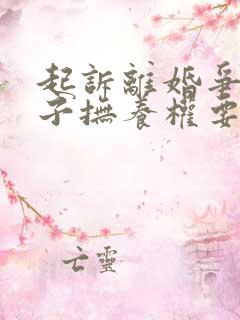 起訴離婚爭
子撫養權要
亡靈